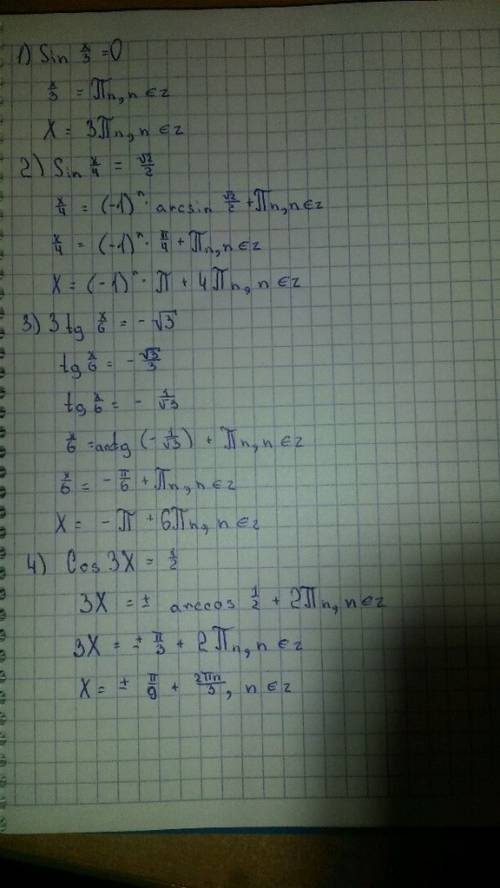 1) Sin x/3 = 0
x/3 = Πn, n ∈ z
X = 3Πn, n ∈ z
2) Sin x/4 = √2/2
x/4 = (-1)ⁿ · arcsin √2/2 + Πn, n ∈ z
x/4 = (-1)ⁿ · π/4 + Πn, n ∈ z
X = (-1)ⁿ · Π + 4Πn, n ∈ z
3) 3 tg x/6 = - √3
tg x/6 = - √3/3
tg x/6 = - 1/√3
x/6 = arctg (- 1/√3) + Πn, n ∈ z
x/6 = - π/6 + Πn, n ∈ z
X = - Π + 6Πn, n ∈ z
4) Cos 3X = 1/2
3X = ± arccos 1/2 + 2Πn, n ∈ z
3X = ± π/3 + 2Πn, n ∈ z
X = ± π/9 + 2Πn/3, n ∈ z